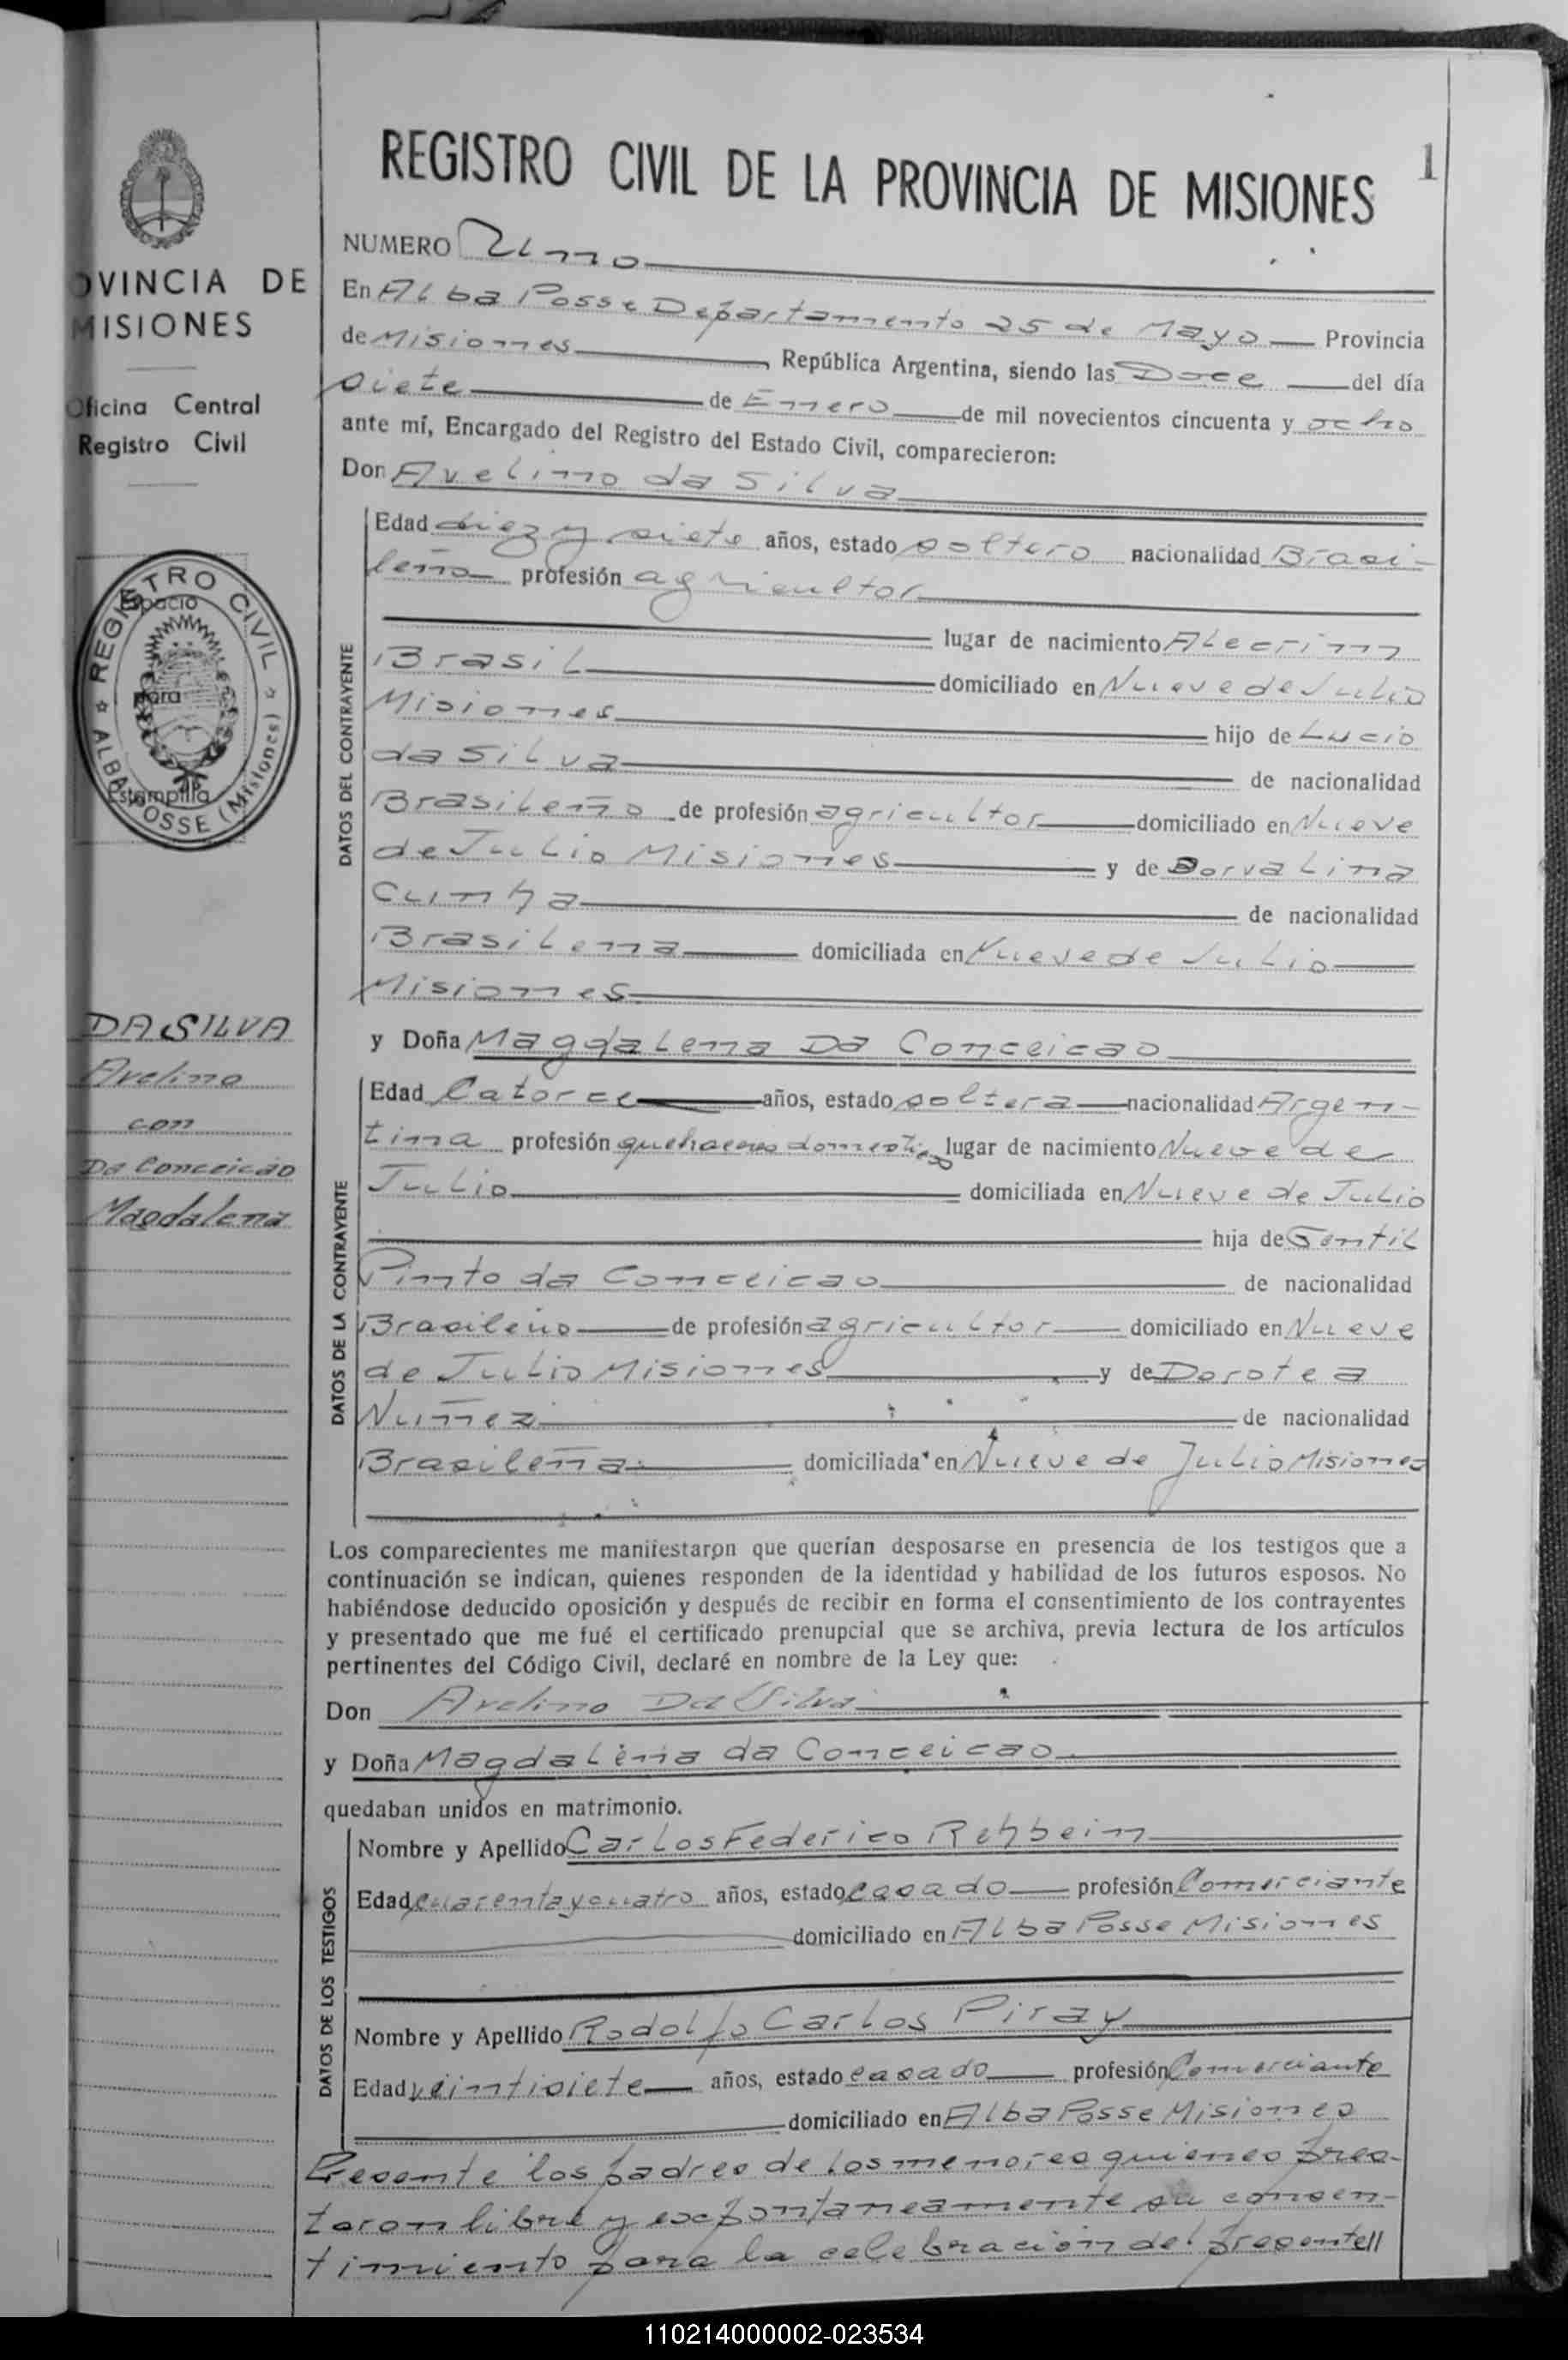 REGISTRO CIVIL DE LA PROVINCIA DE MISIONES 1
PROVINCIA DE
MISIONES
Oficina Central
Registro Civil
REGISTRO CIVIL
ALBA POSSE (Misiones)
Espacio
para
Estampilla
DA SILVA
Avelino
con
Da Conceicão
Magdalena
NUMERO Uno
En Alba Posse Departamento 25 de Mayo Provincia
de Misiones, República Argentina, siendo las Doce del día
siete de Enero de mil novecientos cincuenta y ocho
ante mí, Encargado del Registro del Estado Civil, comparecieron:
Don Avelino da Silva
DATOS DEL CONTRAYENTE
Edad diez y siete años, estado soltero nacionalidad Brasi-
leño profesión agricultor
lugar de nacimiento Alecrim
Brasil domiciliado en Nueve de Julio
Misiones hijo de Lucio
da Silva de nacionalidad
Brasileño de profesión agricultor domiciliado en Nueve
de Julio Misiones y de Dorvalina
Cunha de nacionalidad
Brasilena domiciliada en Nueve de Julio
Misiones
y Doña Magdalena Da Conceicao
DATOS DE LA CONTRAYENTE
Edad Catorce años, estado soltera nacionalidad Argen-
tina profesión quehaceres domestico lugar de nacimiento Nueve de
Julio domiciliada en Nueve de Julio
hija de Gentil
Pinto da Conceicao de nacionalidad
Brasileño de profesión agricultor domiciliado en Nueve
de Julio Misiones y de Dorotea
Nuñez de nacionalidad
Brasileña domiciliada en Nueve de Julio Misiones
Los comparecientes me manifestaron que querían desposarse en presencia de los testigos que a
continuación se indican, quienes responden de la identidad y habilidad de los futuros esposos. No
habiéndose deducido oposición y después de recibir en forma el consentimiento de los contrayentes
y presentado que me fué el certificado prenupcial que se archiva, previa lectura de los artículos
pertinentes del Código Civil, declaré en nombre de la Ley que:
Don Avelino Da Silva
y Doña Magdalena da Conceicao
quedaban unidos en matrimonio.
DATOS DE LOS TESTIGOS
Nombre y Apellido Carlos Federico Rehbein
Edad cuarenta y cuatro años, estado casado profesión Comerciante
domiciliado en Alba Posse Misiones
Nombre y Apellido Rodolfo Carlos Piray
Edad veintisiete años, estado casado profesión Comerciante
domiciliado en Alba Posse Misiones
Presente los padres de los menores quienes pres-
taron libre y espontaneamente su consen-
timiento para la celebración del presente//
110214000002-023534